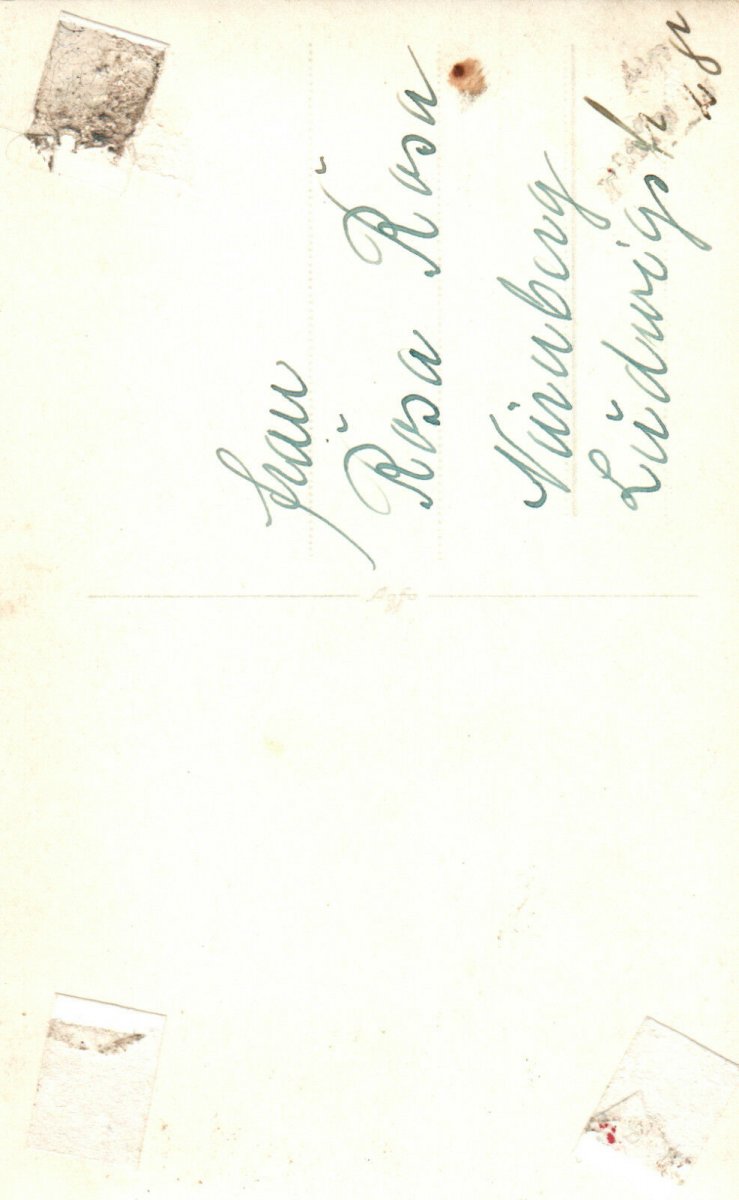 Frau
Rosa Rosa
Nürnberg
Ludwigstr
Agfa